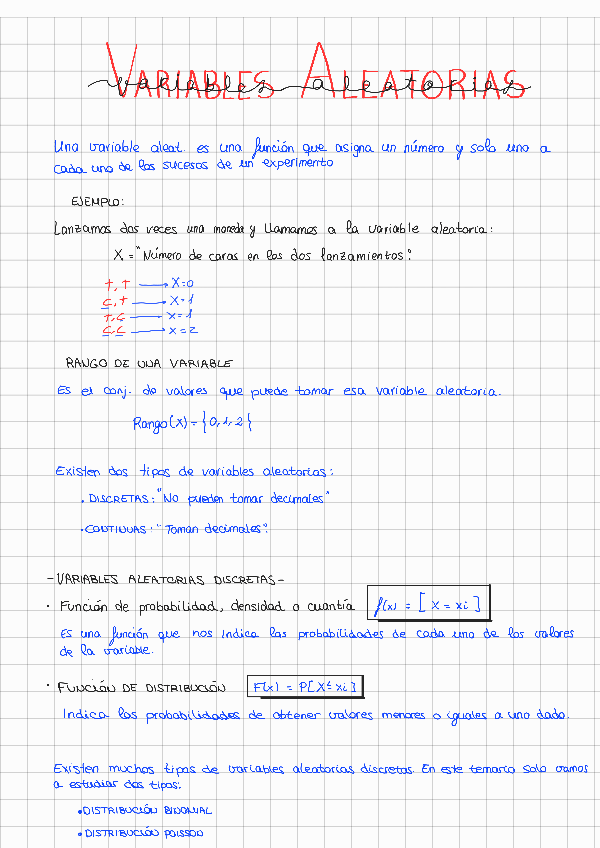 VARIABLES ALEATORIAS
variables aleatorias
Una variable aleat. es una función que asigna un número y solo uno a
cada uno de los sucesos de un experimento
EJEMPLO:
Lanzamos dos veces una moneda y llamamos a la variable aleatoria:
X = "Número de caras en los dos lanzamientos".
+, + → X=0
C, + → X=1
+, C → X=1
C, C → X=2
RANGO DE UNA VARIABLE
Es el conj. de valores que puede tomar esa variable aleatoria.
Rango(X) = {0, 1, 2}
Existen dos tipos de variables aleatorias:
· DISCRETAS: "No pueden tomar decimales"
· CONTINUAS: "Toman decimales".
- VARIABLES ALEATORIAS DISCRETAS -
· Función de probabilidad, densidad o cuantía f(x) = [X = xi]
Es una función que nos indica las probabilidades de cada uno de los valores
de la variable.
· FUNCIÓN DE DISTRIBUCIÓN F(x) = P[X ≤ xi]
Indica las probabilidades de obtener valores menores o iguales a uno dado.
Existen muchos tipos de variables aleatorias discretas. En este temario solo vamos
a estudiar dos tipos:
• DISTRIBUCIÓN BINOMIAL
• DISTRIBUCIÓN POISSON